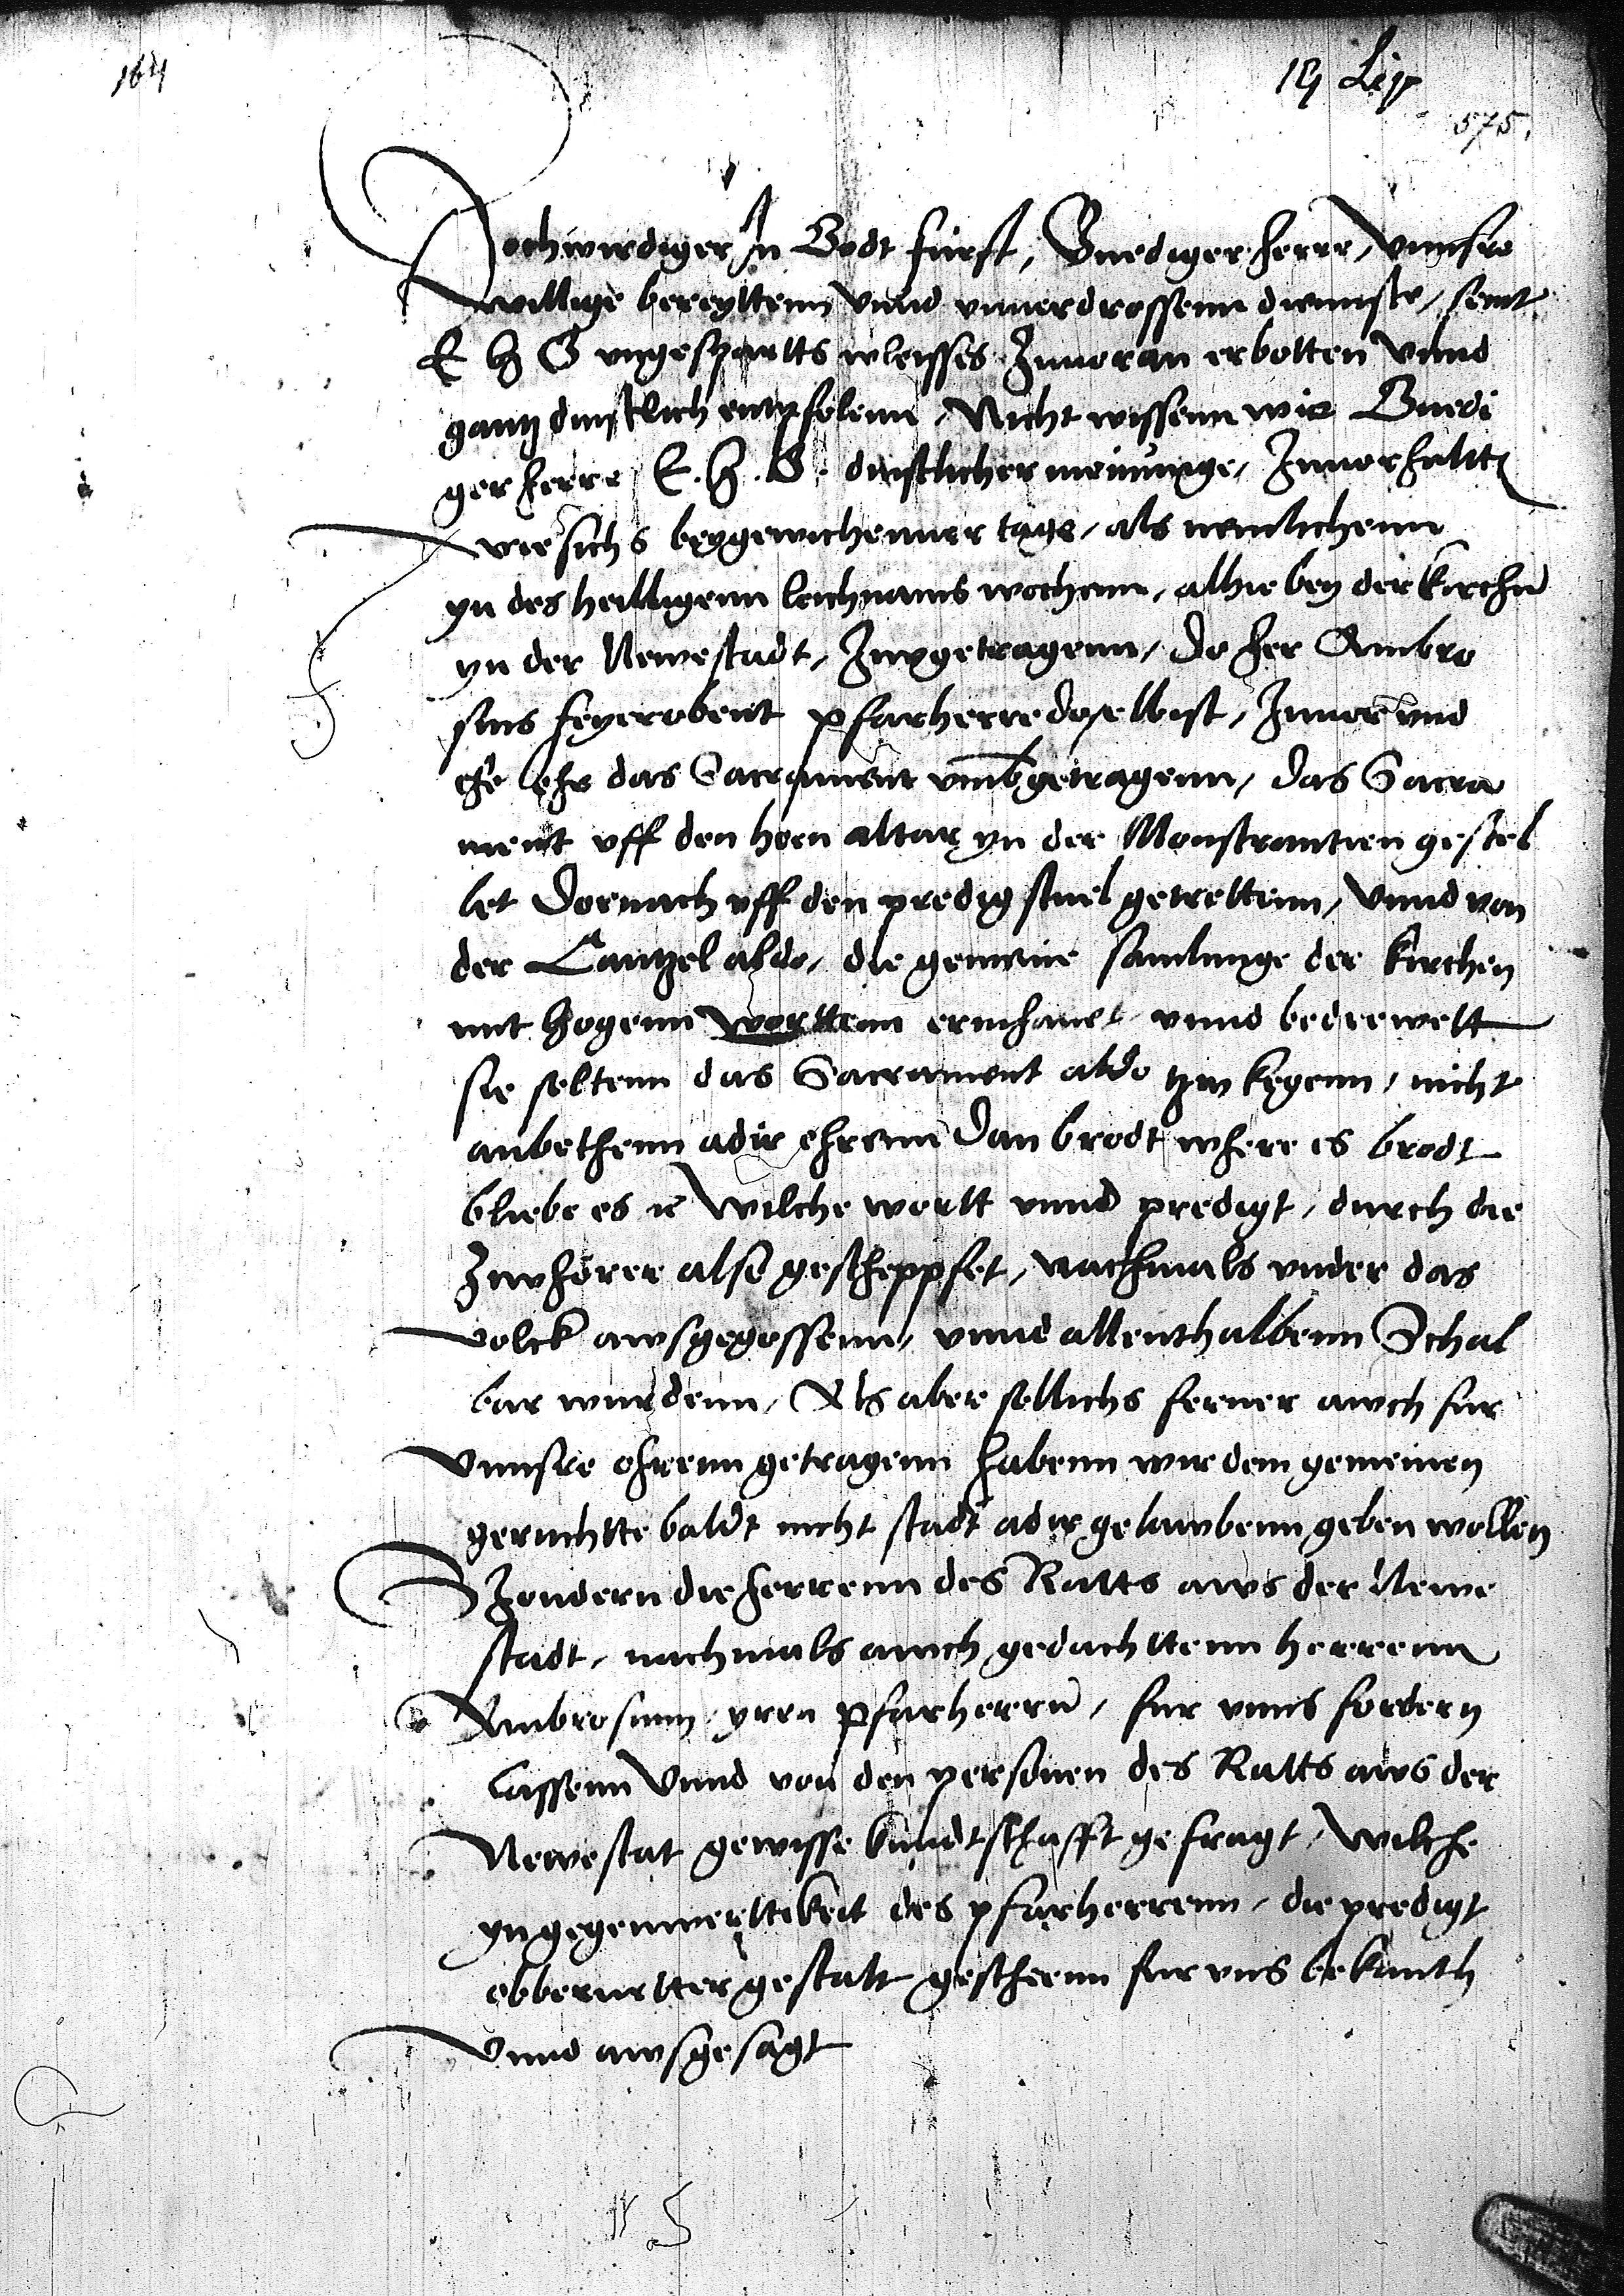 164
19 Lip
575.
Hochwirdiger In Godt furst, Gnediger herre, Vnnsre
willige bereyttenn Vnnd vnuerdrossenn diennste, seint
E h G vngesparts vleisses Zuuoran erbotten Vnnd
gantz dinstlich entpfolenn, Nicht wissenn wir Gnedi
ger herre E. h. G. dinstlicher meinunge, Zuuorhaltt
wie sichs beygewichenner tage, als nemlichenn
yn des heilligenn leichnams wochenn, alhie bey der kirchn
yn der Newestadt, Zuugetragenn, Do her Ambro
sius feyerobent pfarherre doselbist, Zuuor vnd
ehe ehr das Sacrament vmbgetragenn, das Sacra
ment vff den hoen altar yn der Monstrantien gestel
let Dornach vff den predigstuel getrettenn, Vnnd von
der Cantzel aldo, die gemeine samlunge der kirchen
mit hogenn worttenn ermhanet vnnd bedrewett
sie soltenn das Sacrament aldo tzw kegenn, nicht
anbethenn adir ehrenn Dan brodt where es brodt
bliebe es Wilche wortt vnnd predigt, durch die
Zuuhorer also gescheppfet, nachmals vnder das
volck awsgegossenn, vnnd allenthalbenn Schal
bar wurdenn, Als aber sollichs ferner awch fur
Vnnsre ohrenn getragenn habenn wir dem gemeinen
geruchtte baldt nicht stadt adir gelawbenn geben wollen
Szondern die herrenn des Ratts aws der Newe
stadt, nachmals awch gedachttenn herrenn
Ambrosium yren pfarherrn, fur vnns fordern
lassenn Vnnd von den personen des Ratts aws der
Newestat gewisse kundtschafft gefragt, Wilche
yn gegenwerttikeit des pfarherrenn, die predigt
obberurtter gestalt gescheenn fur vns bekanth
Vnnd awsgesagt